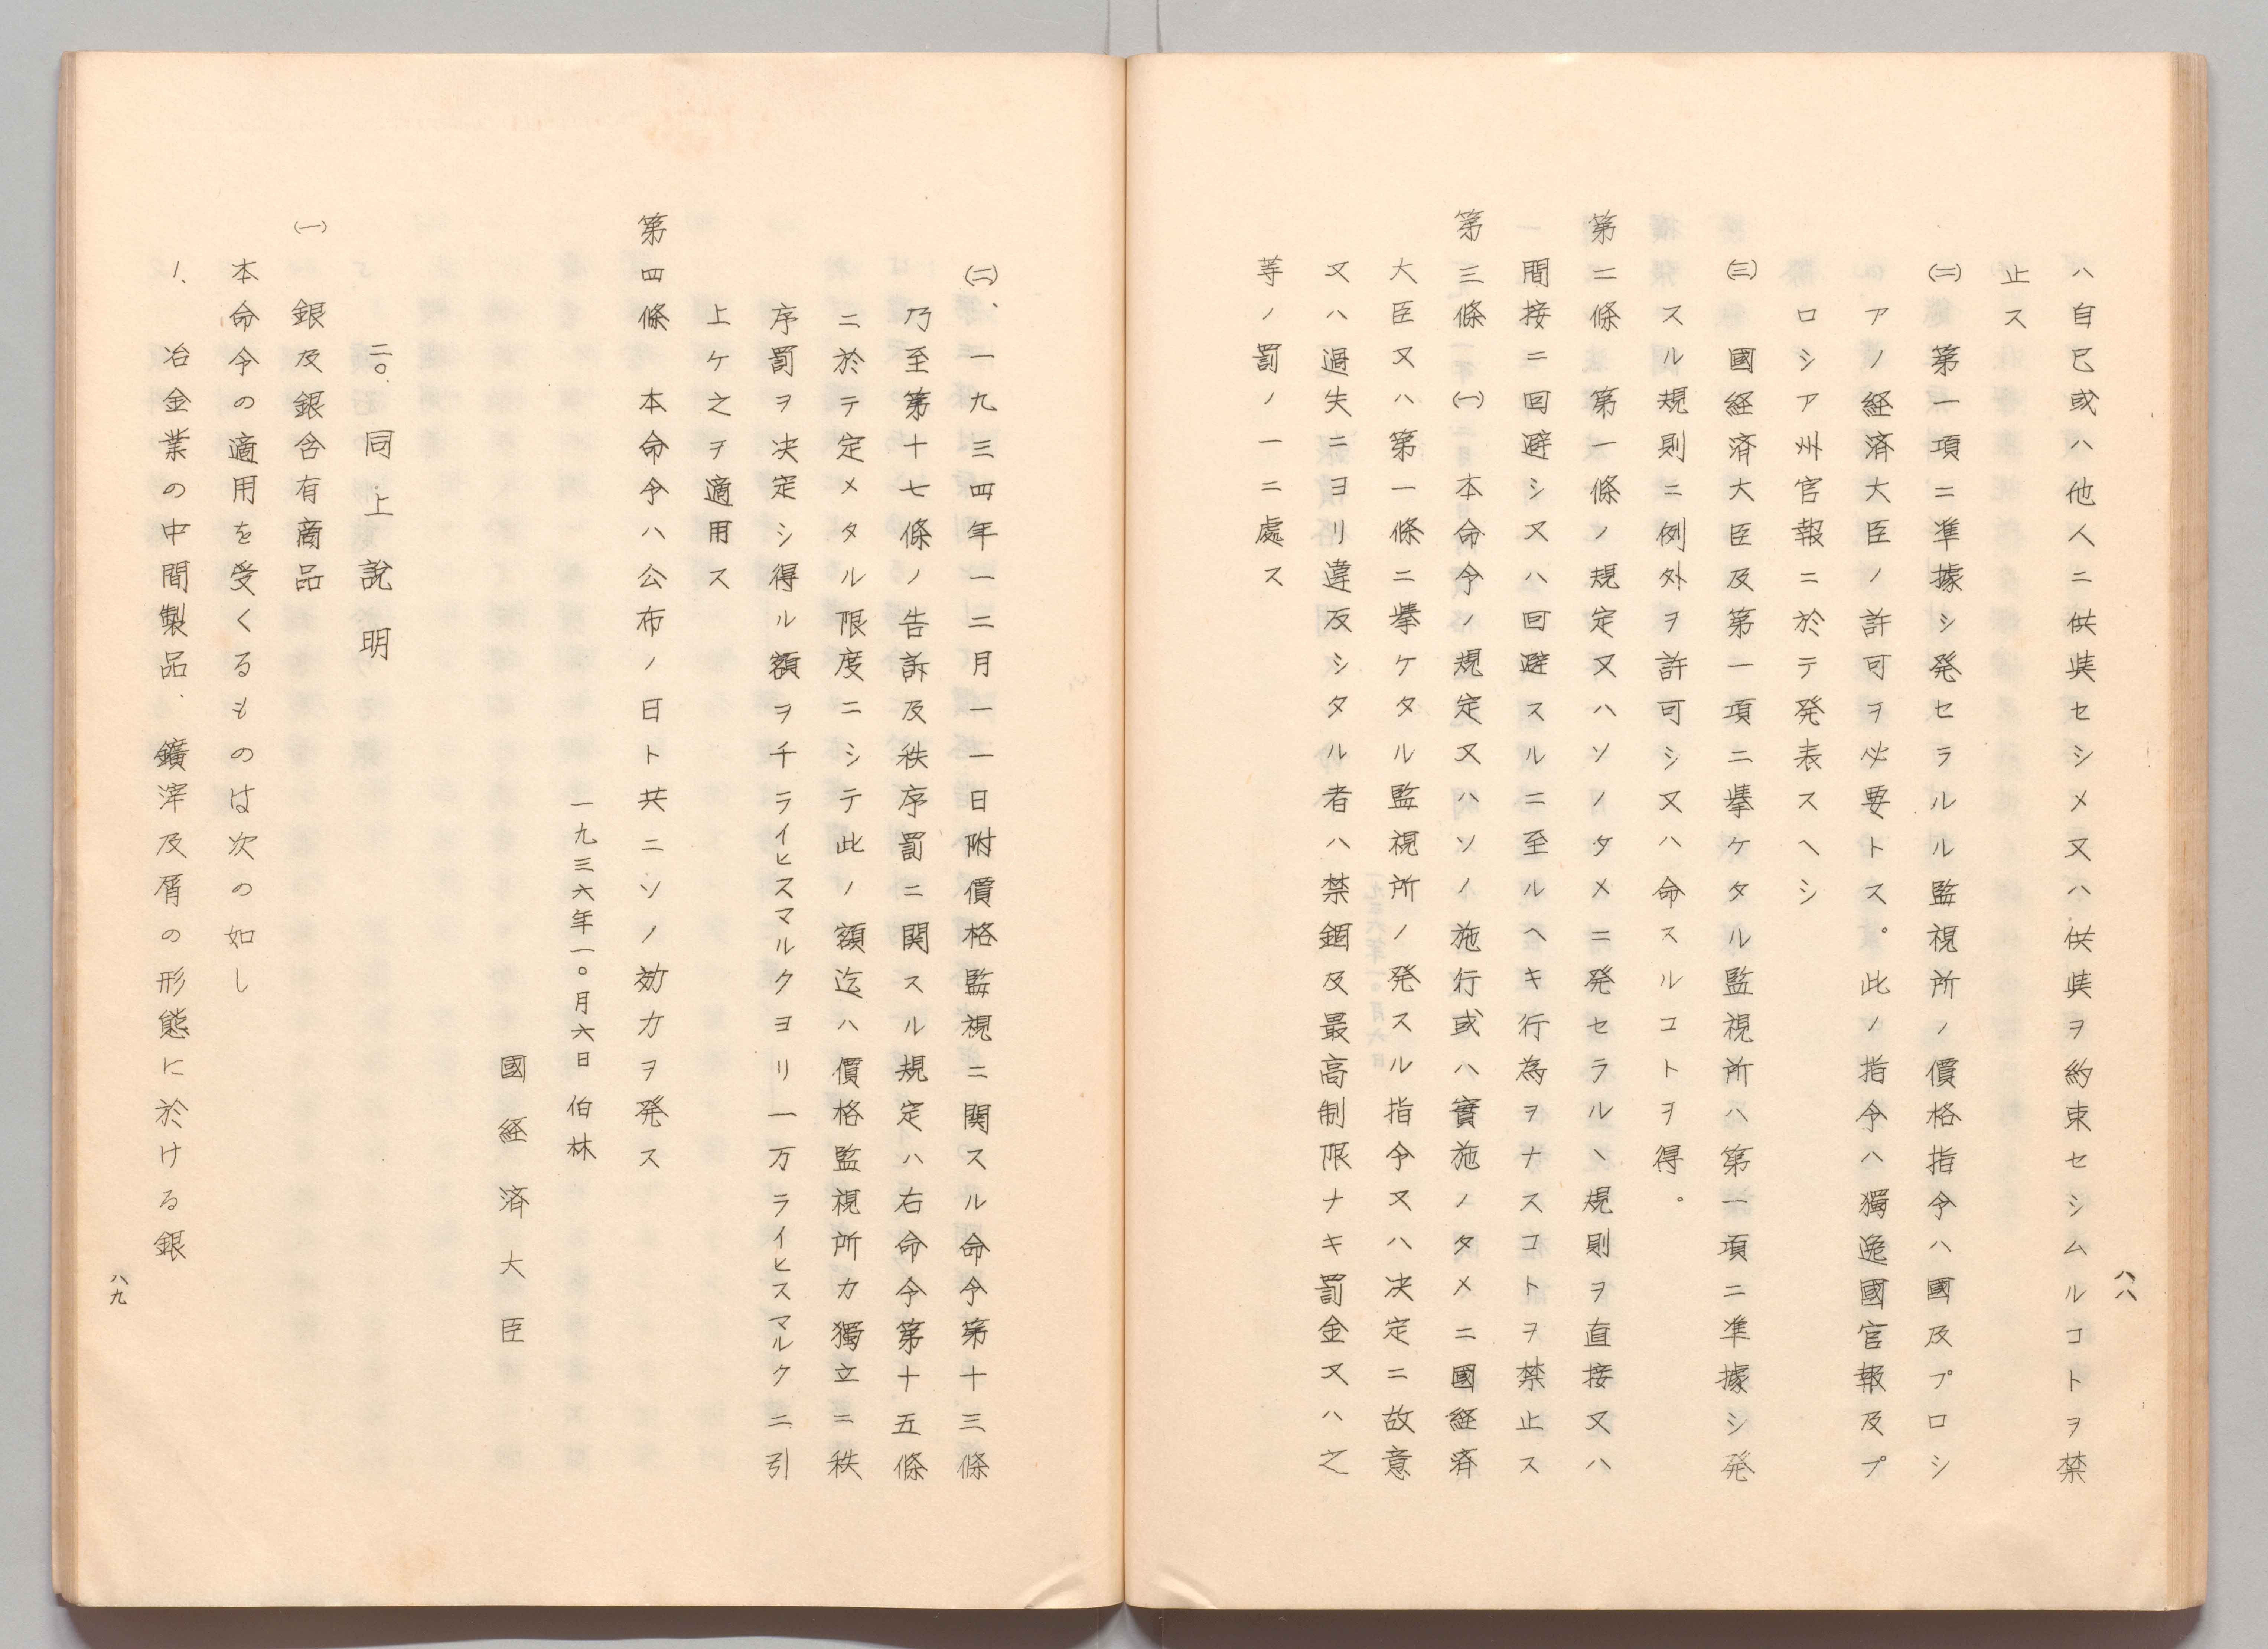 八八
ハ自己或ハ他人ニ供與セシメ又ハ供與ヲ約束セシムルコトヲ禁
止ス
㈡　第一項ニ準據シ発セラルル監視所ノ價格指令ハ國及プロシ
アノ経済大臣ノ許可ヲ必要トス。此ノ指令ハ獨逸國官報及プ
ロシア州官報ニ於テ発表スヘシ
㈢　國経済大臣及第一項ニ擧ケタル監視所ハ第一項ニ準據シ発
スル規則ニ例外ヲ許可シ又ハ命スルコトヲ得。
第二條　第一條ノ規定又ハソノタメニ発セラルヽ規則ヲ直接又ハ
間接ニ回避シ又ハ回避スルニ至ルヘキ行為ヲナスコトヲ禁止ス
第三條　㈠　本命令ノ規定又ハソノ施行或ハ實施ノタメニ國経済
大臣又ハ第一條ニ擧ケタル監視所ノ発スル指令又ハ决定ニ故意
又ハ過失ニヨリ違反シタル者ハ禁錮及最高制限ナキ罰金又ハ之
等ノ罰ノ一ニ處ス
㈡、一九三四年一二月一一日附價格監視ニ関スル命令第十三條
乃至第十七條ノ告訴及秩序罰ニ関スル規定ハ右命令第十五條
ニ於テ定メタル限度ニシテ此ノ額迄ハ價格監視所カ獨立ニ秩
序罰ヲ决定シ得ル額ヲ千ライヒスマルクヨリ一万ライヒスマルクニ引
上ケ之ヲ適用ス
第四條　本命令ハ公布ノ日ト共ニソノ効力ヲ発ス
一九三六年一〇月六日　伯林
國経済大臣
二〇.同上說明
㈠　銀及銀含有商品
本命令の適用を受くるものは次の如し
1、冶金業の中間製品、鑛滓及屑の形態に於ける銀
八九